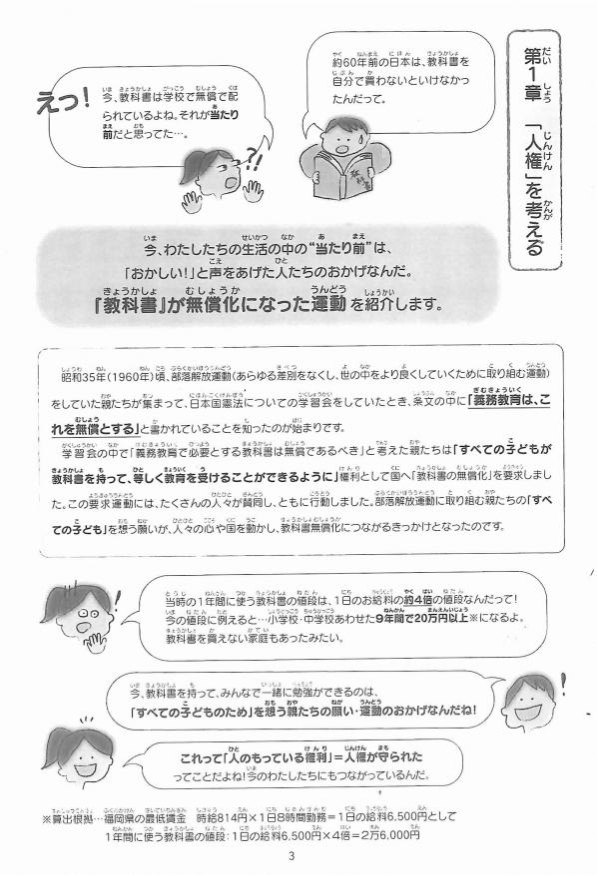 第1章 「人権」を考える
約60年前の日本は、教科書を
自分で買わないといけなかっ
たんだって。
えっ!
今、教科書は学校で無償で配
られているよね。それが当たり
前だと思ってた…。
?!
教科書
今、わたしたちの生活の中の“当たり前”は、
「おかしい!」と声をあげた人たちのおかげなんだ。
『教科書』が無償化になった運動を紹介します。
昭和35年(1960年)頃、部落解放運動(あらゆる差別をなくし、世の中をより良くしていくために取り組む運動)
をしていた親たちが集まって、日本国憲法についての学習会をしていたとき、条文の中に「義務教育は、こ
れを無償とする」と書かれていることを知ったのが始まりです。
学習会の中で「義務教育で必要とする教科書は無償であるべき」と考えた親たちは「すべての子どもが
教科書を持って、等しく教育を受けることができるように」権利として国へ「教科書の無償化」を要求しまし
た。この要求運動には、たくさんの人々が賛同し、ともに行動しました。部落解放運動に取り組む親たちの「すべ
ての子ども」を想う願いが、人々の心や国を動かし、教科書無償化につながるきっかけとなったのです。
当時の1年間に使う教科書の値段は、1日のお給料の約4倍の値段なんだって!
今の値段に例えると…小学校・中学校あわせた9年間で20万円以上※になるよ。
教科書を買えない家庭もあったみたい。
!
今、教科書を持って、みんなで一緒に勉強ができるのは、
「すべての子どものため」を想う親たちの願い・運動のおかげなんだね!
!
これって「人のもっている権利」=人権が守られた
ってことだよね!今のわたしたちにもつながっているんだ。
※算出根拠…福岡県の最低賃金 時給814円×1日8時間勤務=1日の給料6,500円として
1年間に使う教科書の値段:1日の給料6,500円×4倍=2万6,000円
3